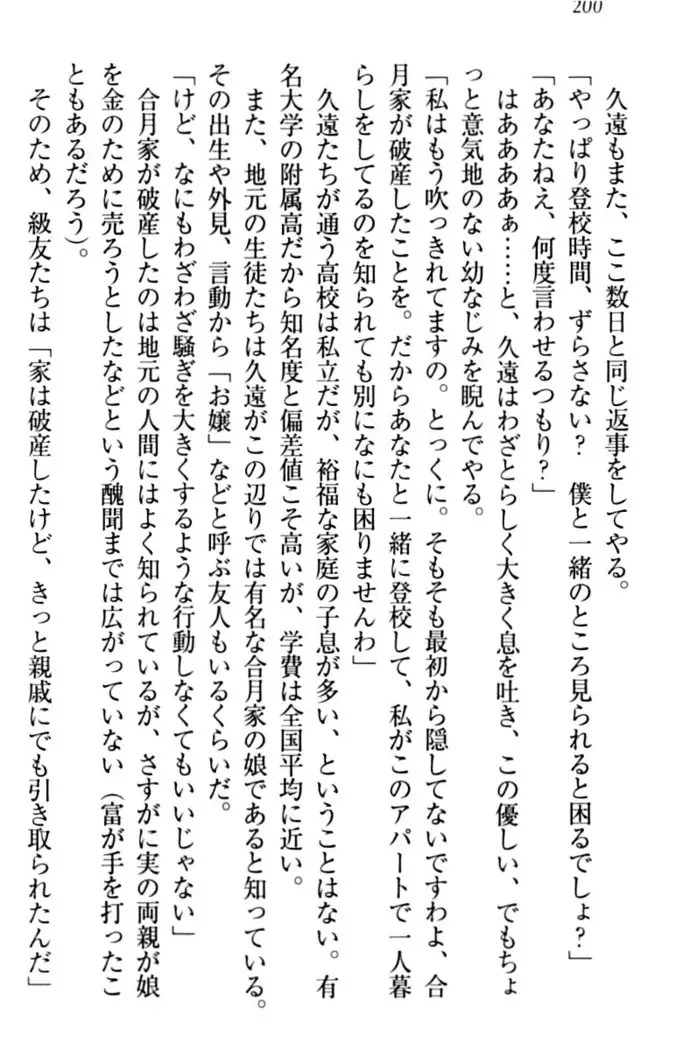 200
久遠もまた、ここ数日と同じ返事をしてやる。
「やっぱり登校時間、ずらさない？　僕と一緒のところ見られると困るでしょ？」
「あなたねえ、何度言わせるつもり？」
はああああぁ……と、久遠はわざとらしく大きく息を吐き、この優しい、でもちょ
っと意気地のない幼なじみを睨んでやる。
「私はもう吹っきれてますの。とっくに。そもそも最初から隠してないですわよ、合
月家が破産したことを。だからあなたと一緒に登校して、私がこのアパートで一人暮
らしをしてるのを知られても別になにも困りませんわ」
久遠たちが通う高校は私立だが、裕福な家庭の子息が多い、ということはない。有
名大学の附属高だから知名度と偏差値こそ高いが、学費は全国平均に近い。
また、地元の生徒たちは久遠がこの辺りでは有名な合月家の娘であると知っている。
その出生や外見、言動から「お嬢」などと呼ぶ友人もいるくらいだ。
「けど、なにもわざわざ騒ぎを大きくするような行動しなくてもいいじゃない」
合月家が破産したのは地元の人間にはよく知られているが、さすがに実の両親が娘
を金のために売ろうとしたなどという醜聞までは広がっていない（富が手を打ったこ
ともあるだろう）。
そのため、級友たちは「家は破産したけど、きっと親戚にでも引き取られたんだ」